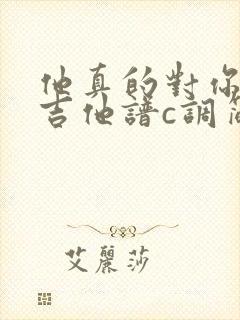 他真的對你
吉他譜c調簡
艾麗莎